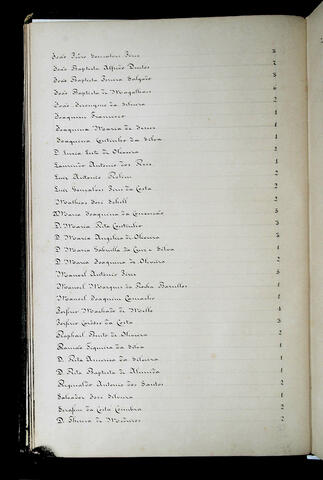 João Pedro Gonçalves Pires 2
João Baptista Alfredo Dantos 2
João Baptista Pereira Salgado 3
João Baptista de Magalhães 6
João Jeronymo da Silveira 2
Joaquim Francisco 1
Joaquina Maria de Jesus 1
Joaquina Coutinho da Silva 1
D. Luzia Leite de Oliveira 1
Laurindo Antonio dos Reis 1
Luiz Antonio 2
Luiz Gonçalves Pires da Costa 2
Mathias José Schell 2
D. Maria Joaquina da Conceição 5
D. Maria Rita Coutinho 3
D. Maria Angelica de Oliveira 2
D. Maria Gabriella da Cruz e Silva 1
D. Maria Joaquina de Oliveira 2
Manoel Antonio Pires 5
Manoel Marques da Rocha Barcellos 1
Manoel Joaquim Camacho 1
Porfirio Machado de Mello 4
Porfirio da Costa 3
Raphael Pinto de Oliveira 2
Ramão Siqueira da Silva 1
D. Rita Amancia da Silveira 1
D. Rita Baptista de Almeida 1
Reginaldo Antonio dos Santos 2
Salvador José Silveira 1
Serafim da Costa Coimbra 2
D. Thereza de Medeiros 2